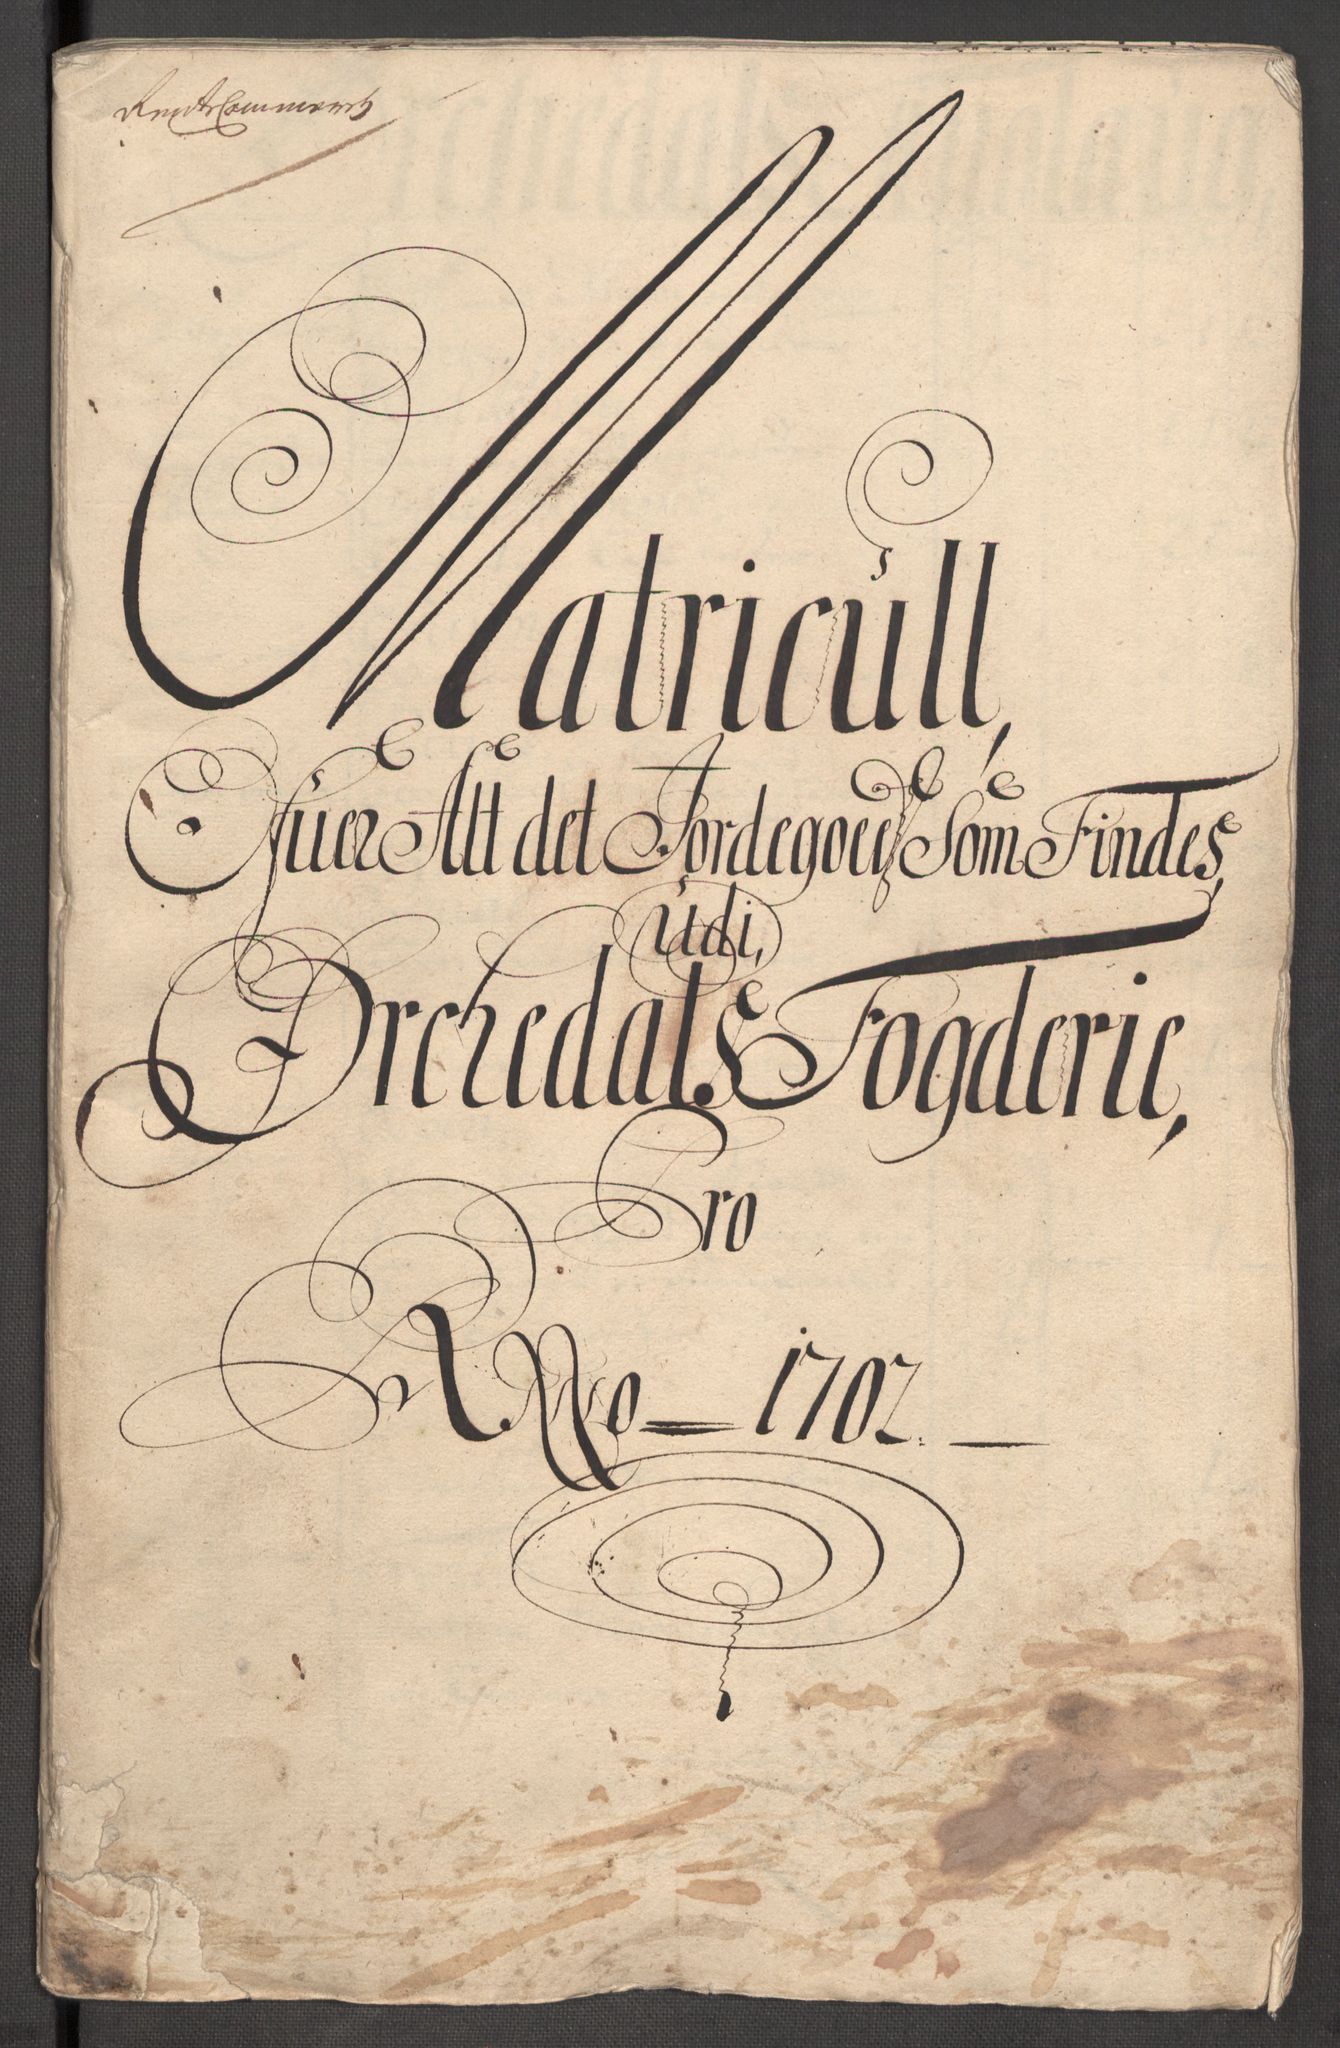 RenteCammerets
Matricull,
Ofuer Alt det Jordegodtz Som Findes,
udi,
Orchedals Fogderie,
Pro
ANNo 1702.